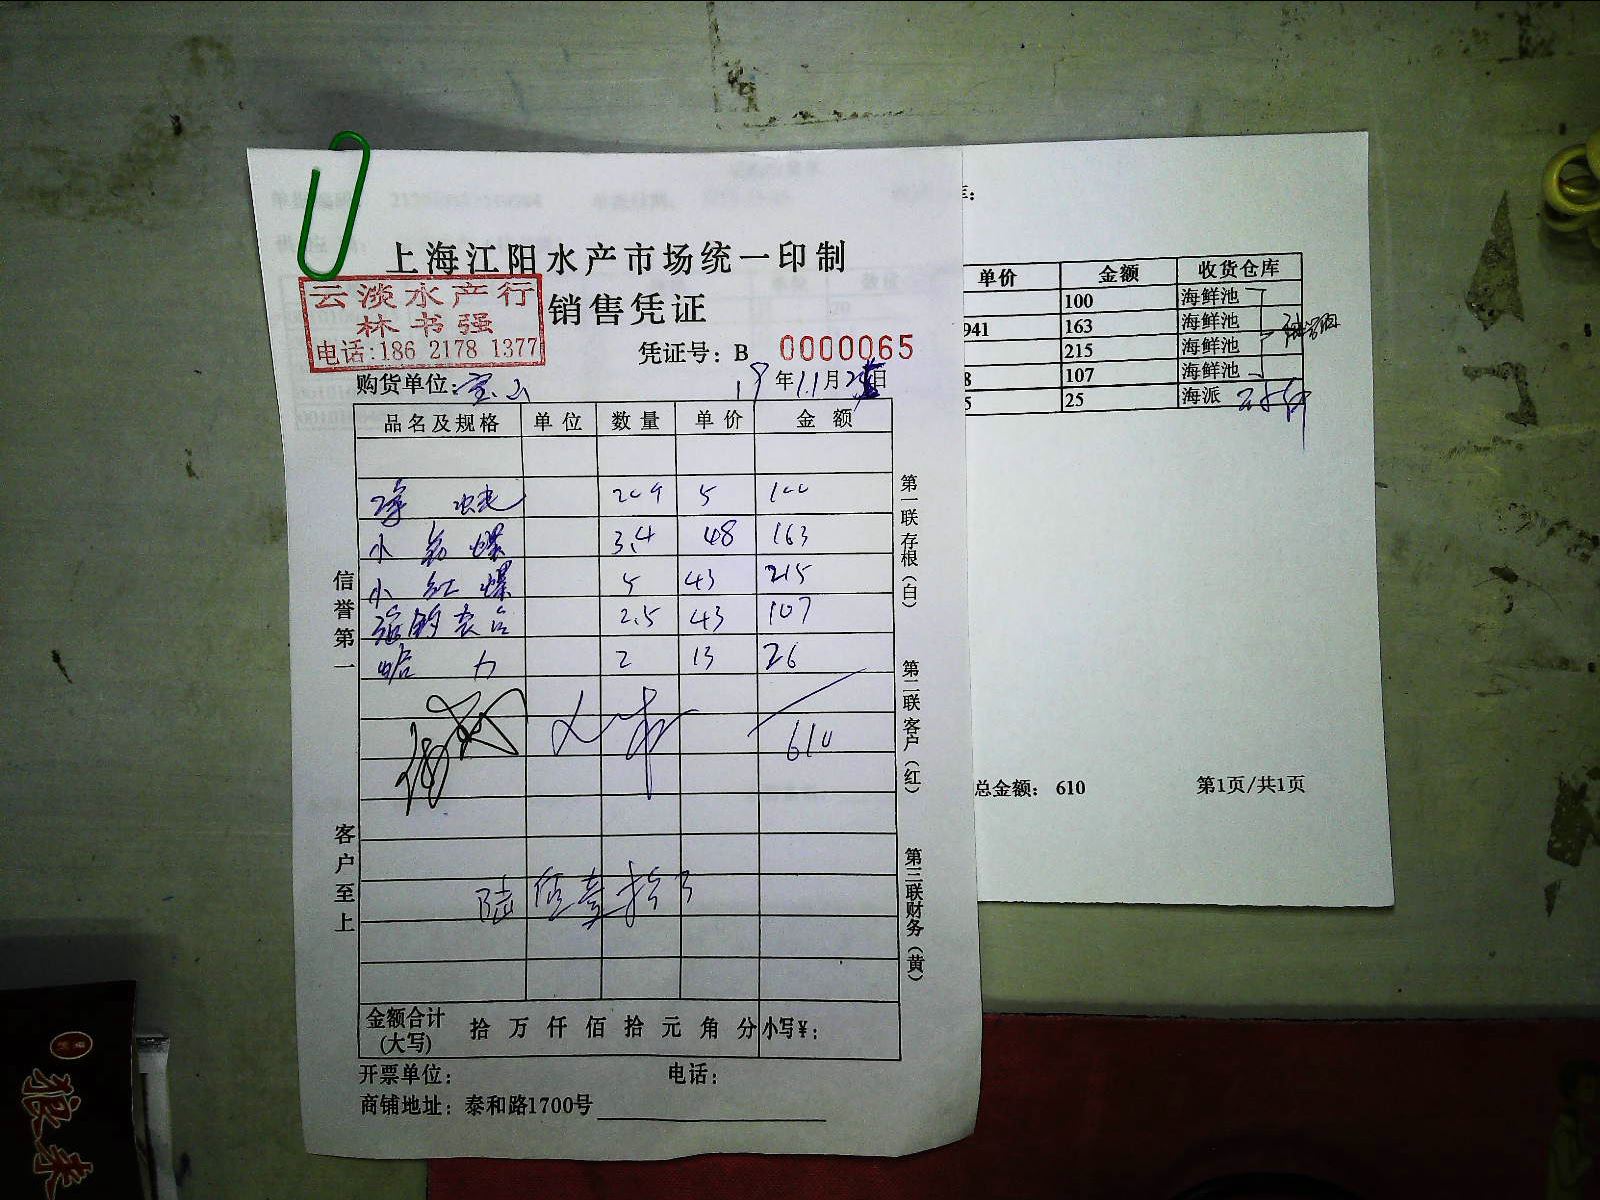 上海江阳水产市场统一印制
云淡水产行
林书强
电话:186 2178 1377
销售凭证
凭证号：B 0000065
购货单位：宝山 19年11月25日
品名及规格 单位 数量 单价 金额
5 100
小 螺 3.4 48 163
小红螺 5 43 215
2.5 43 107
蛤 2 13 26
610
陆佰壹拾
金额合计(大写) 拾 万 仟 佰 拾 元 角 分 小写¥：
开票单位： 电话：
商铺地址：泰和路1700号
信誉第一
客户至上
第一联存根(白)
第二联客户(红)
第三联财务(黄)
单价 金额 收货仓库
100 海鲜池
941 163 海鲜池
215 海鲜池
8 107 海鲜池
5 25 海派
总金额： 610 第1页/共1页